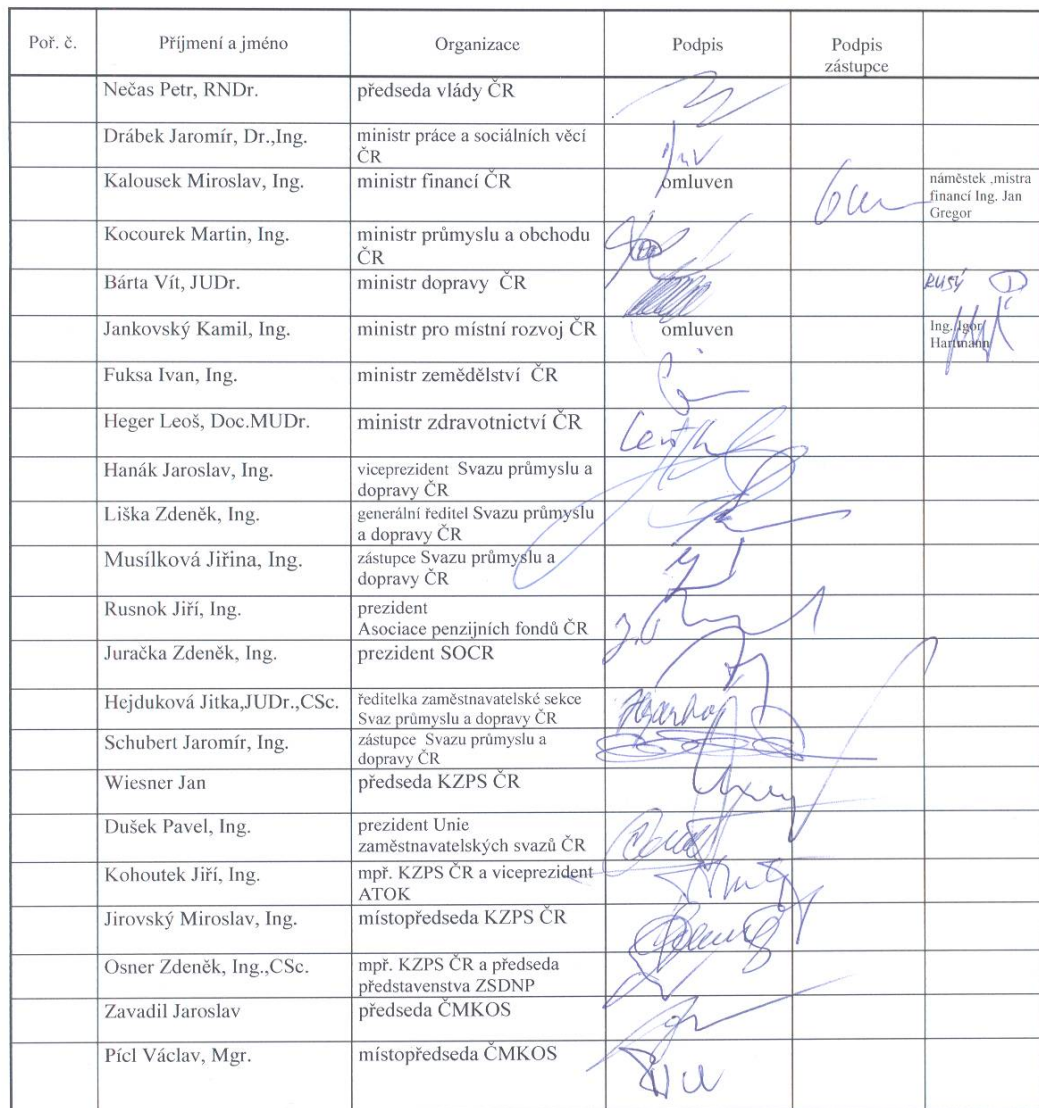 Poř. č. Příjmení a jméno Organizace Podpis Podpis
zástupce
Nečas Petr, RNDr. předseda vlády ČR
Drábek Jaromír, Dr.,Ing. ministr práce a sociálních věcí
ČR
Kalousek Miroslav, Ing. ministr financí ČR omluven náměstek ,mistra
financí Ing. Jan
Gregor
Kocourek Martin, Ing. ministr průmyslu a obchodu
ČR
Bárta Vít, JUDr. ministr dopravy ČR RUSÝ
Jankovský Kamil, Ing. ministr pro místní rozvoj ČR omluven Ing. Igor
Hartmann
Fuksa Ivan, Ing. ministr zemědělství ČR
Heger Leoš, Doc.MUDr. ministr zdravotnictví ČR
Hanák Jaroslav, Ing. viceprezident Svazu průmyslu a
dopravy ČR
Liška Zdeněk, Ing. generální ředitel Svazu průmyslu
a dopravy ČR
Musílková Jiřina, Ing. zástupce Svazu průmyslu a
dopravy ČR
Rusnok Jiří, Ing. prezident
Asociace penzijních fondů ČR
Juračka Zdeněk, Ing. prezident SOCR
Hejduková Jitka,JUDr.,CSc. ředitelka zaměstnavatelské sekce
Svaz průmyslu a dopravy ČR
Schubert Jaromír, Ing. zástupce Svazu průmyslu a
dopravy ČR
Wiesner Jan předseda KZPS ČR
Dušek Pavel, Ing. prezident Unie
zaměstnavatelských svazů ČR
Kohoutek Jiří, Ing. mpř. KZPS ČR a viceprezident
ATOK
Jirovský Miroslav, Ing. místopředseda KZPS ČR
Osner Zdeněk, Ing.,CSc. mpř. KZPS ČR a předseda
představenstva ZSDNP
Zavadil Jaroslav předseda ČMKOS
Pícl Václav, Mgr. místopředseda ČMKOS